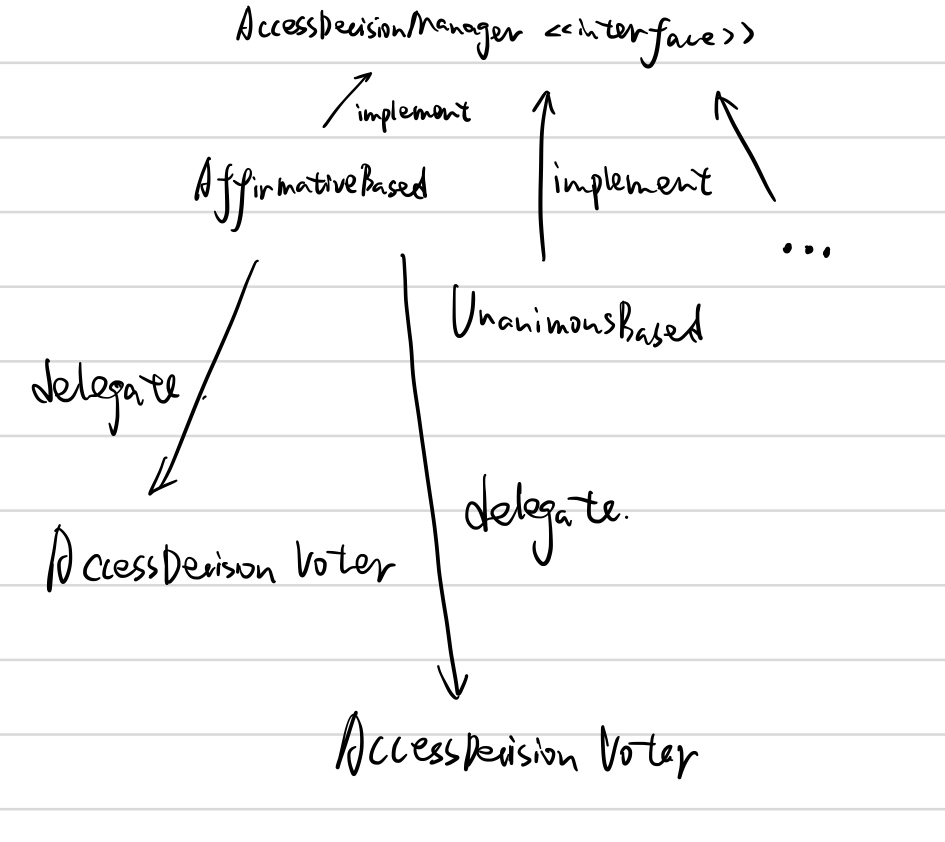 AccessDecisionManager <<interface>>
implement
AffirmativeBased
implement
...
UnanimousBased
delegate.
delegate.
AccessDecision Voter
AccessDecision Voter